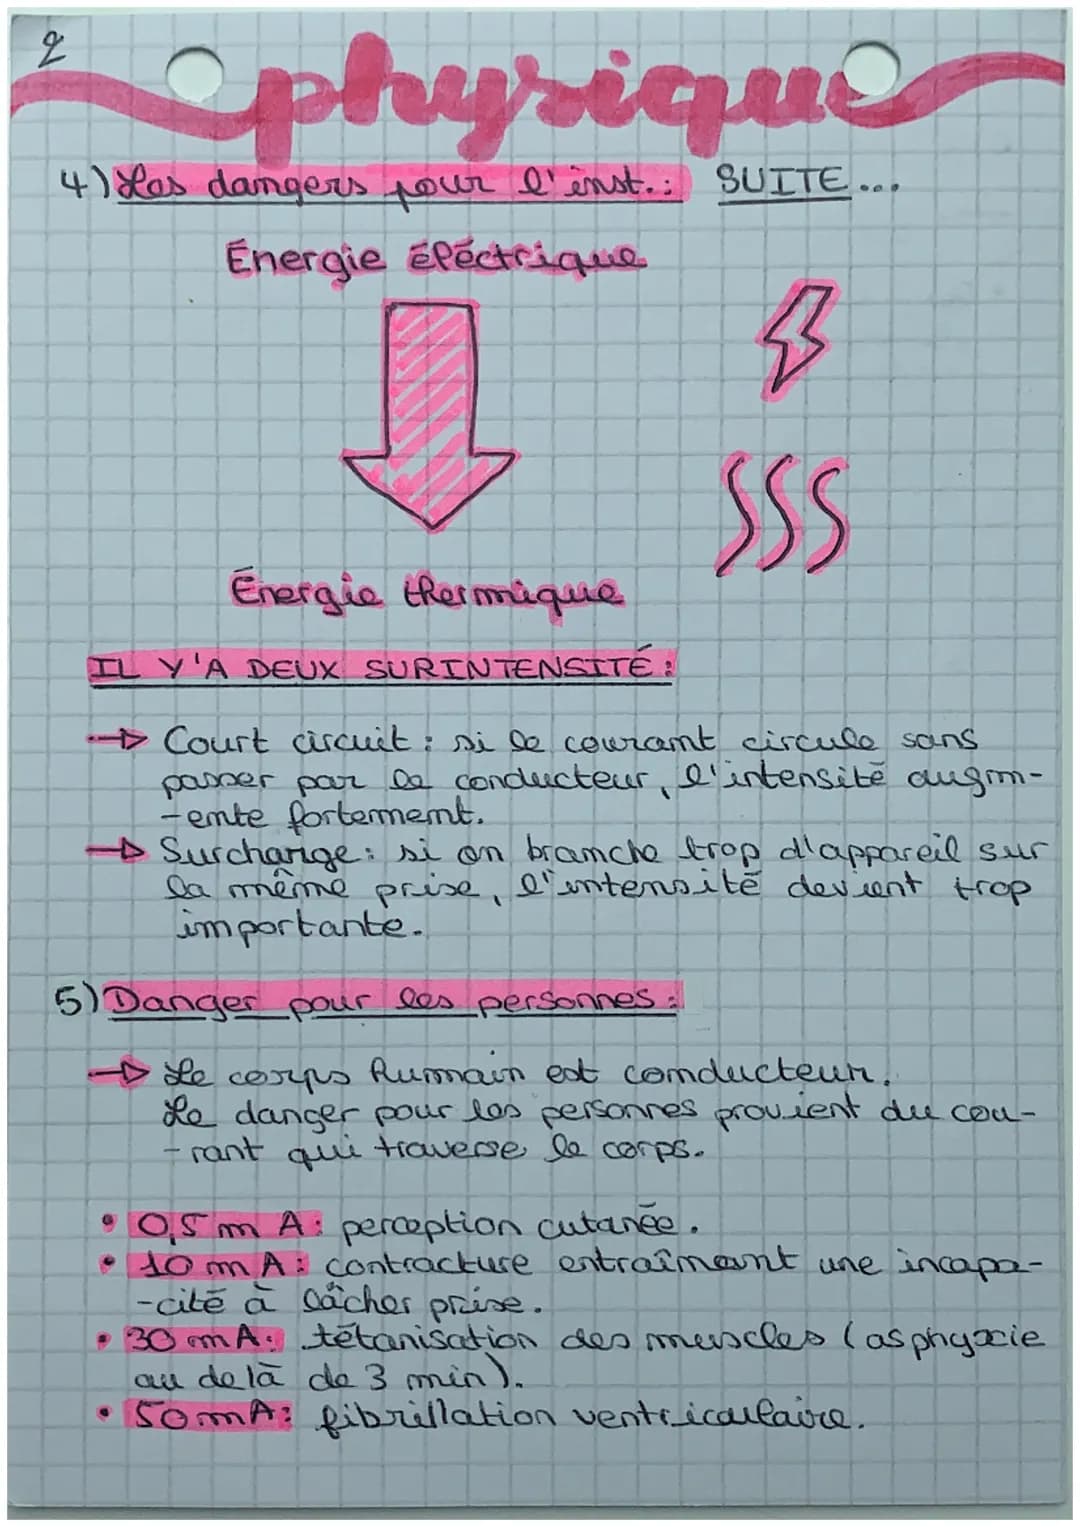 2
physique
4) Les dangers pour l'inst. : SUITE...
Énergie éléctrique
Énergie thermique
IL Y'A DEUX SURINTENSITÉ :
Court circuit : si le courant circule sans
passer par le conducteur, l'intensité augm-
-ente fortement.
Surcharge : si on branche trop d'appareil sur
la même prise, l'intensité devient trop
importante.
5) Danger pour les personnes :
Le corps humain est conducteur.
Le danger pour les personnes provient du cou-
-rant qui traverse le corps.
• 0,5 mA : perception cutanée.
• 10 mA : contracture entraînant une incapa-
-cité à lâcher prise.
• 30 mA : tétanisation des muscles (asphyxie
au delà de 3 min).
• 50 mA : fibrillation ventriculaire.